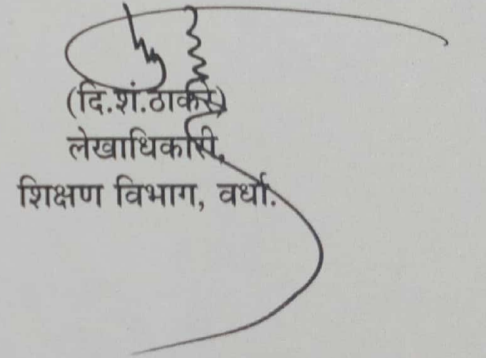 (दि.शं.ठाकरे)
लेखाधिकारी,
शिक्षण विभाग, वर्धा.